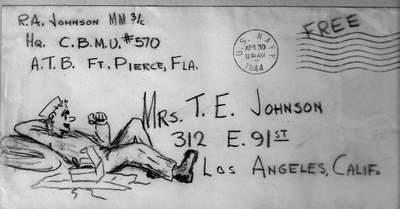 R.A. JOHNSON MM 3/c
HQ. C.B.M.U. #570
A.T.B. FT. PIERCE, FLA.
U.S. NAVY
APR 30
1944
FREE
MRS. T. E. JOHNSON
312 E. 91ST
LOS ANGELES, CALIF.